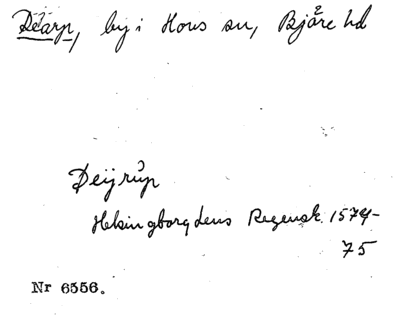 Dearp, by i Hovs sn, Bjäre hd
Deijrup
Helsingborg Lens Regensk. 1574-
75
Nr 6556.